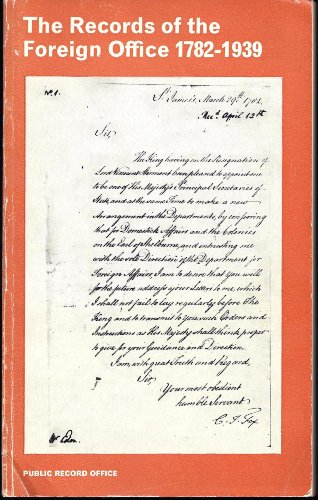 The Records of the
Foreign Office 1782-1939
Nº 1.
St James's, March 29th 1782.
Recd April 12th
Sir,
The King having on the Resignation of
Lord Viscount Stormont been pleased to appoint me
to be one of His Majesty's Principal Secretaries of
State, and at the same Time to make a new
Arrangement in the Departments, by conferring
that for Domestick Affairs and the Colonies
on the Earl of Shelburne, and entrusting me
with the sole Direction of the Department for
Foreign Affairs, I am to desire that You will
for the future address your Letters to me, which
I shall not fail to lay regularly before The
King and to transmit to You such Orders and
Instructions as His Majesty shall think proper
to give for your Guidance and Direction.
I am with great Truth and Regard,
Sir,
Your most obedient
humble Servant
C. J. Fox
Mr Eden.
PUBLIC RECORD OFFICE